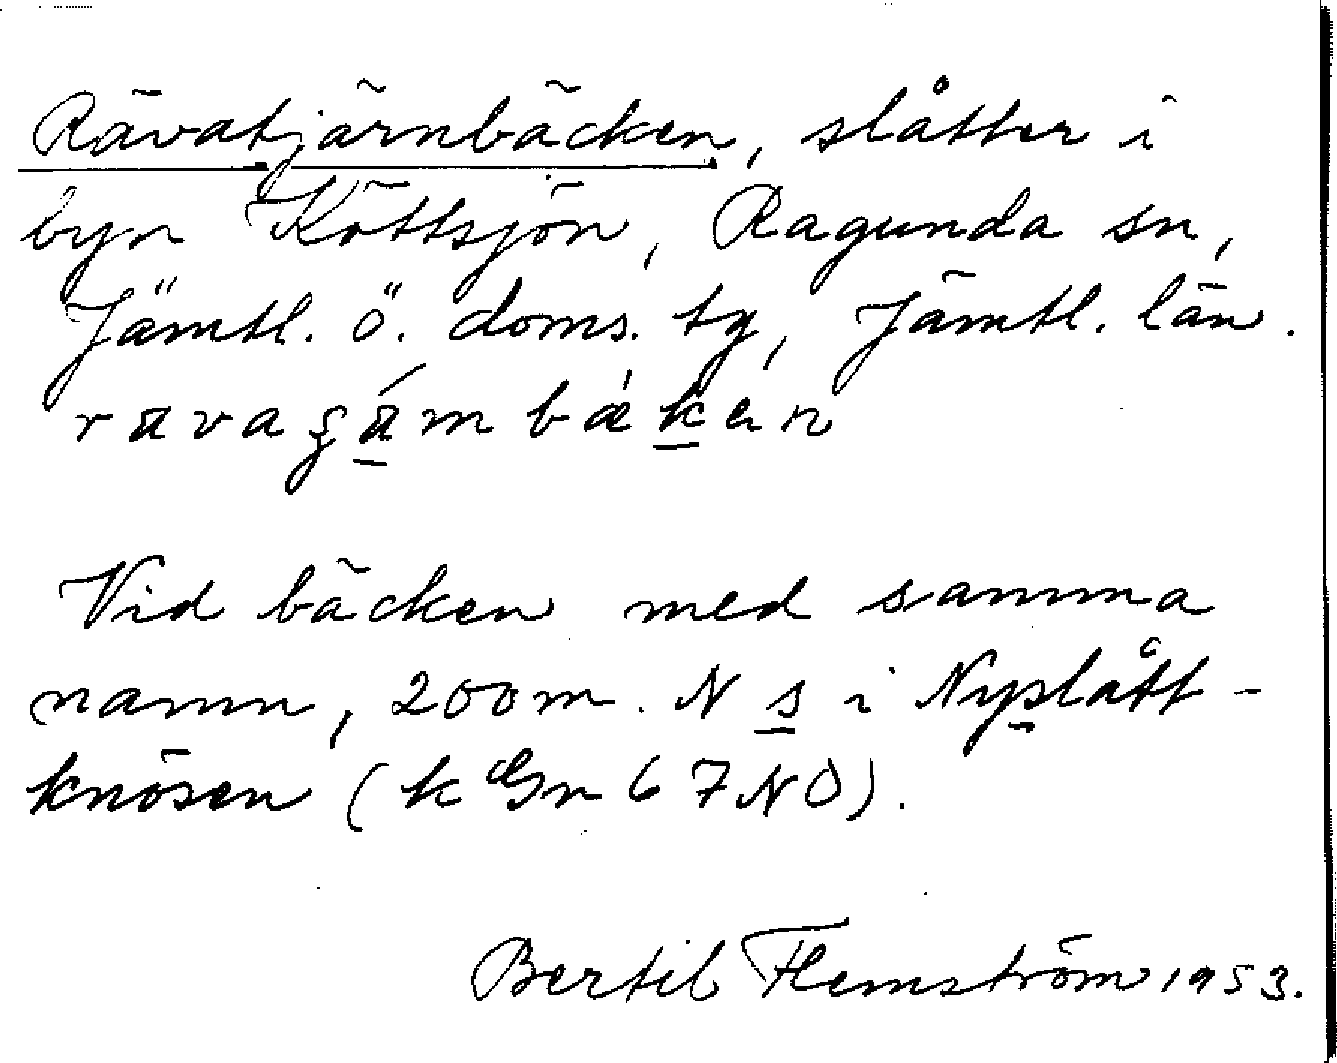 Rävatjärnbäcken, slåtter i
byn Köttsjön, Ragunda sn,
Jämtl. ö. doms. tg, Jämtl. län.
Vid bäcken med samma
namn, 200 m. N s i Nyslått-
knösen (k Gn 67 NO).
Bertil Flemström 1953.